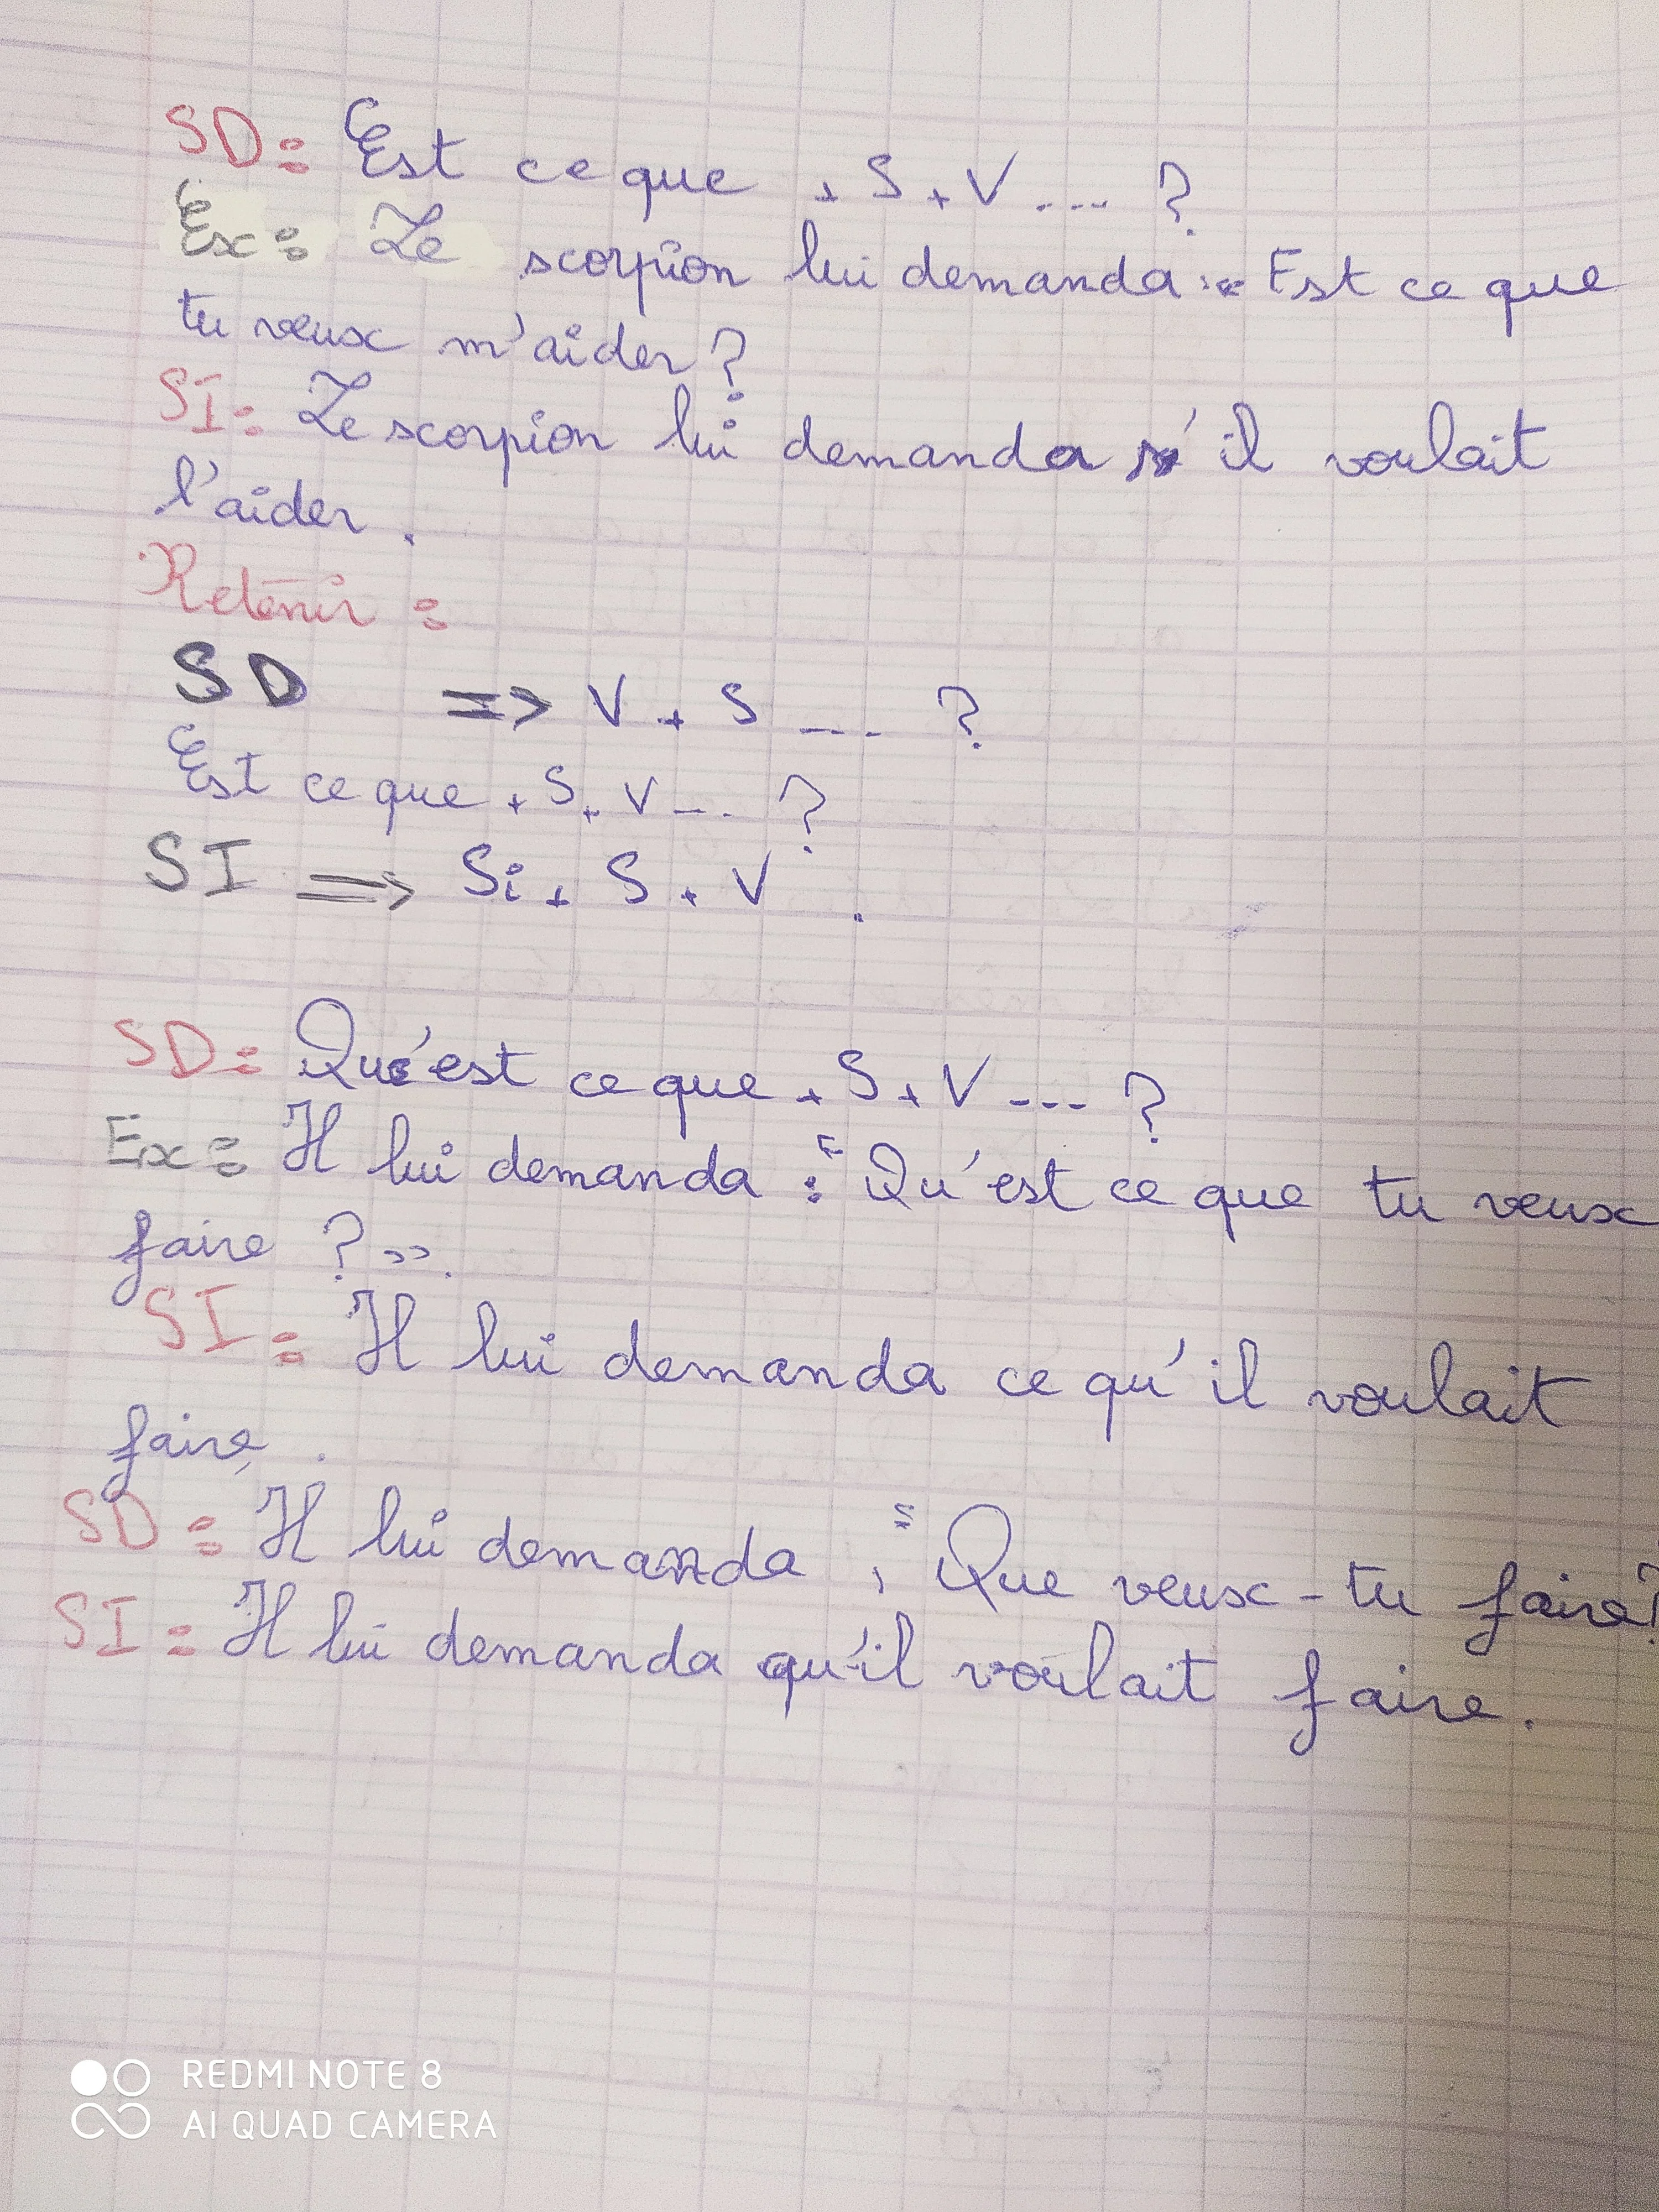 SD: Est ce que + S + V ... ?
Ex: Le scorpion lui demanda : « Est ce que
tu veux m'aider ?
SI: Le scorpion lui demanda s'il voulait
l'aider .
Retenir :
SD => V + S ... ?
Est ce que + S + V ... ?
SI => Si + S + V .
SD: Qu'est ce que + S + V ... ?
Ex: Il lui demanda : « Qu'est ce que tu veux
faire ? ».
SI: Il lui demanda ce qu'il voulait
faire .
SD: Il lui demanda , « Que veux-tu faire?
SI: Il lui demanda qu'il voulait faire .
REDMI NOTE 8
AI QUAD CAMERA